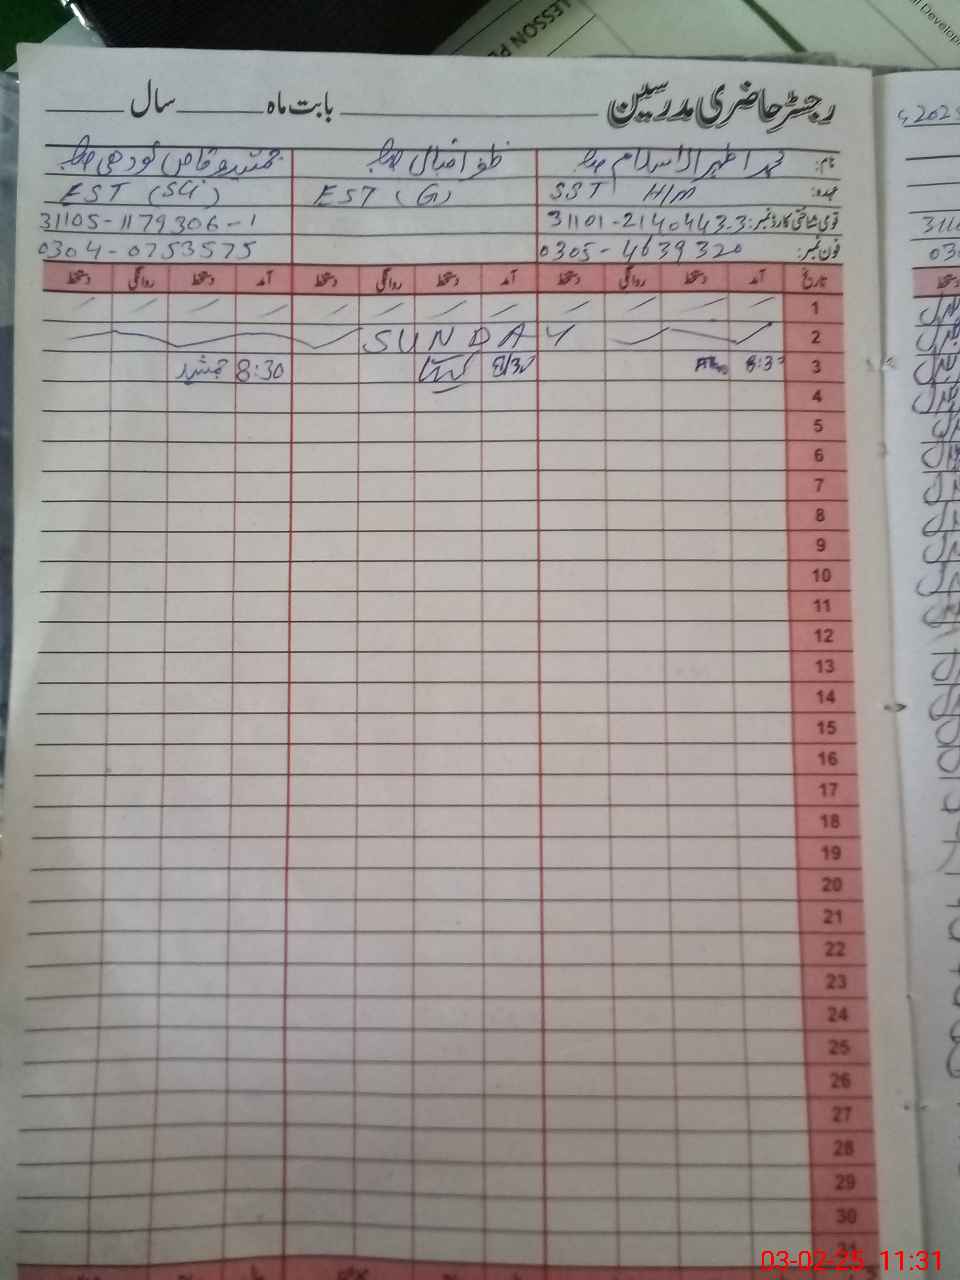 LESSON P
l Develop
رجسٹر حاضری مدرسین ________ بابت ماہ ________ سال ________
2025
نام: محمد اظہر الاسلام صاحب ظفر اقبال صاحب جمشید وقاص لودھی صاحب
عہدہ: SST H/M EST (G) EST (Sci)
قومی شناختی کارڈ نمبر: 31101-2140443-3 31105-1179306-1
فون نمبر: 0305-4639320 0304-0753575
تاریخ آمد دستخط روانگی دستخط آمد دستخط روانگی دستخط آمد دستخط روانگی دستخط
1
2 SUNDAY
3 8:30 8/30 8:30 جمشید
4
5
6
7
8
9
10
11
12
13
14
15
16
17
18
19
20
21
22
23
24
25
26
27
28
29
30
31
03-02-25 11:31